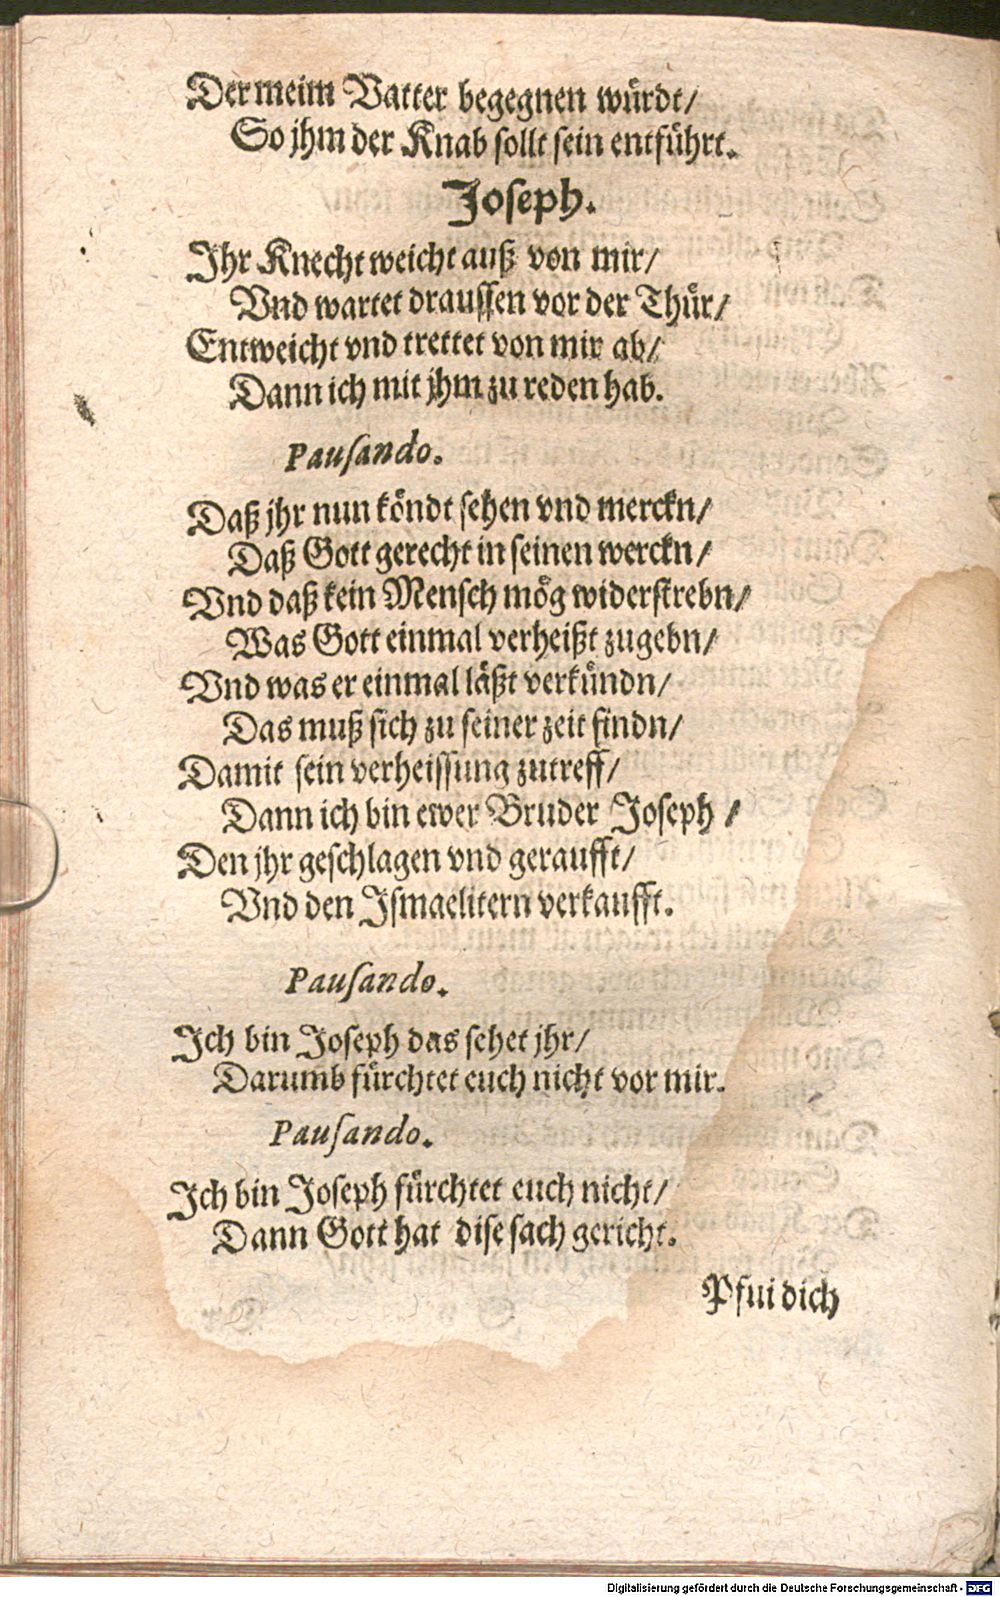 Der meim Vatter begegnen würdt/
So jhm der Knab sollt sein entführt.
Joseph.
Ihr Knecht weicht auß von mir/
Vnd wartet draussen vor der Thür/
Entweicht vnd trettet von mir ab/
Dann ich mit jhm zu reden hab.
Pausando.
Daß jhr nun köndt sehen vnd merckn/
Daß Gott gerecht in seinen werckn/
Vnd daß kein Mensch mög widerstrebn/
Was Gott einmal verheißt zugebn/
Vnd was er einmal läßt verkündn/
Das muß sich zu seiner zeit findn/
Damit sein verheissung zutreff/
Dann ich bin ewer Bruder Joseph/
Den jhr geschlagen vnd geraufft/
Vnd den Ismaelitern verkaufft.
Pausando.
Ich bin Joseph das sehet jhr/
Darumb fürchtet euch nicht vor mir.
Pausando.
Ich bin Joseph fürchtet euch nicht/
Dann Gott hat dise sach gericht.
Pfui dich
Digitalisierung gefördert durch die Deutsche Forschungsgemeinschaft - DFG